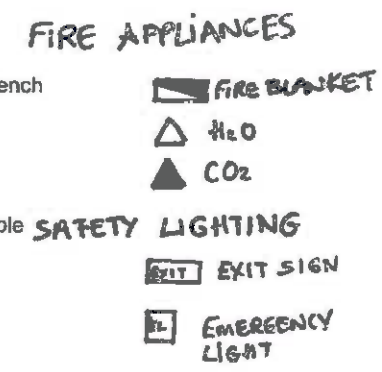 FIRE APPLIANCES
ench
FIRE BLANKET
H2O
CO2
ble SAFETY LIGHTING
EXIT EXIT SIGN
EL EMERGENCY
LIGHT